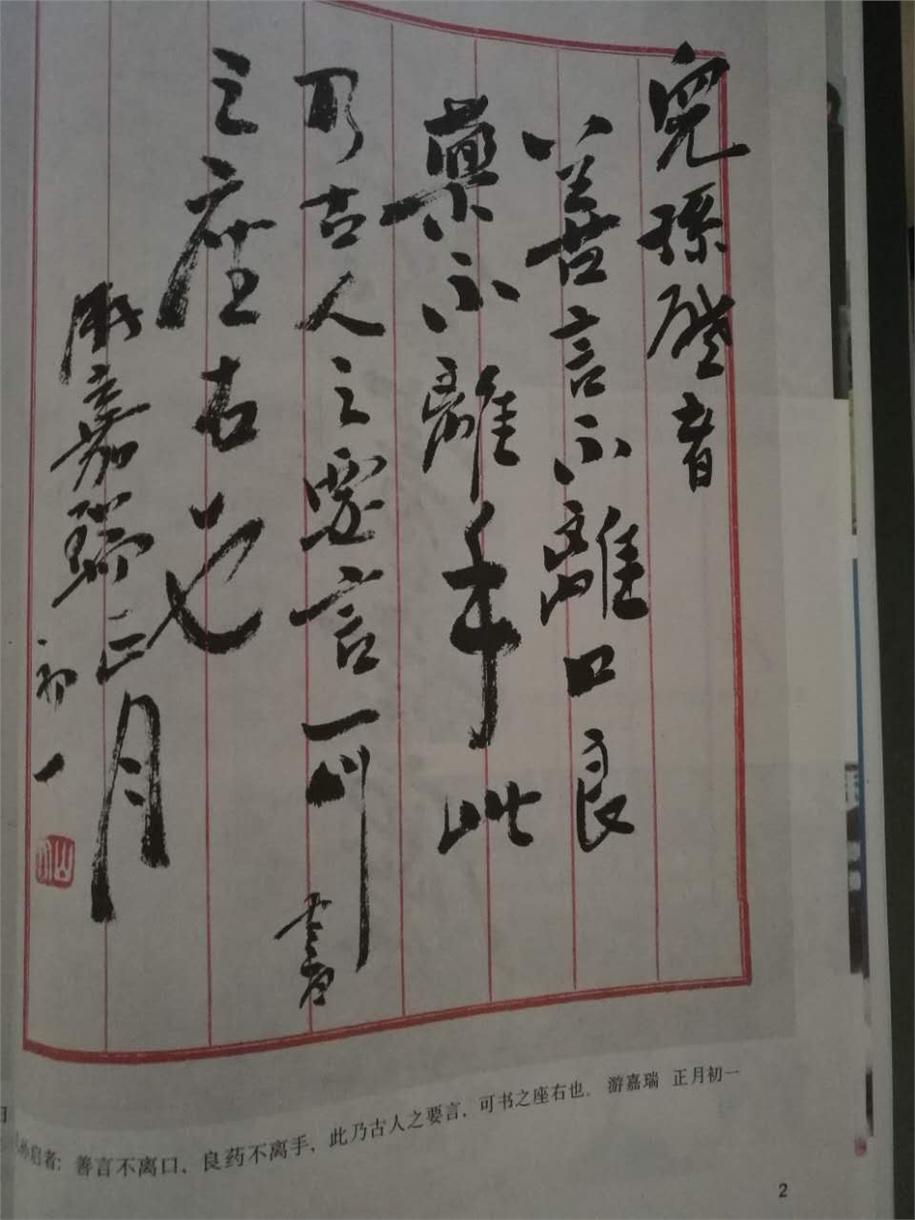 兒孫啓者
善言不離口良
藥不離手此
乃古人之要言可書
之座右也
游嘉瑞正月
初一
启者：善言不离口、良药不离手，此乃古人之要言，可书之座右也。 游嘉瑞 正月初一
2